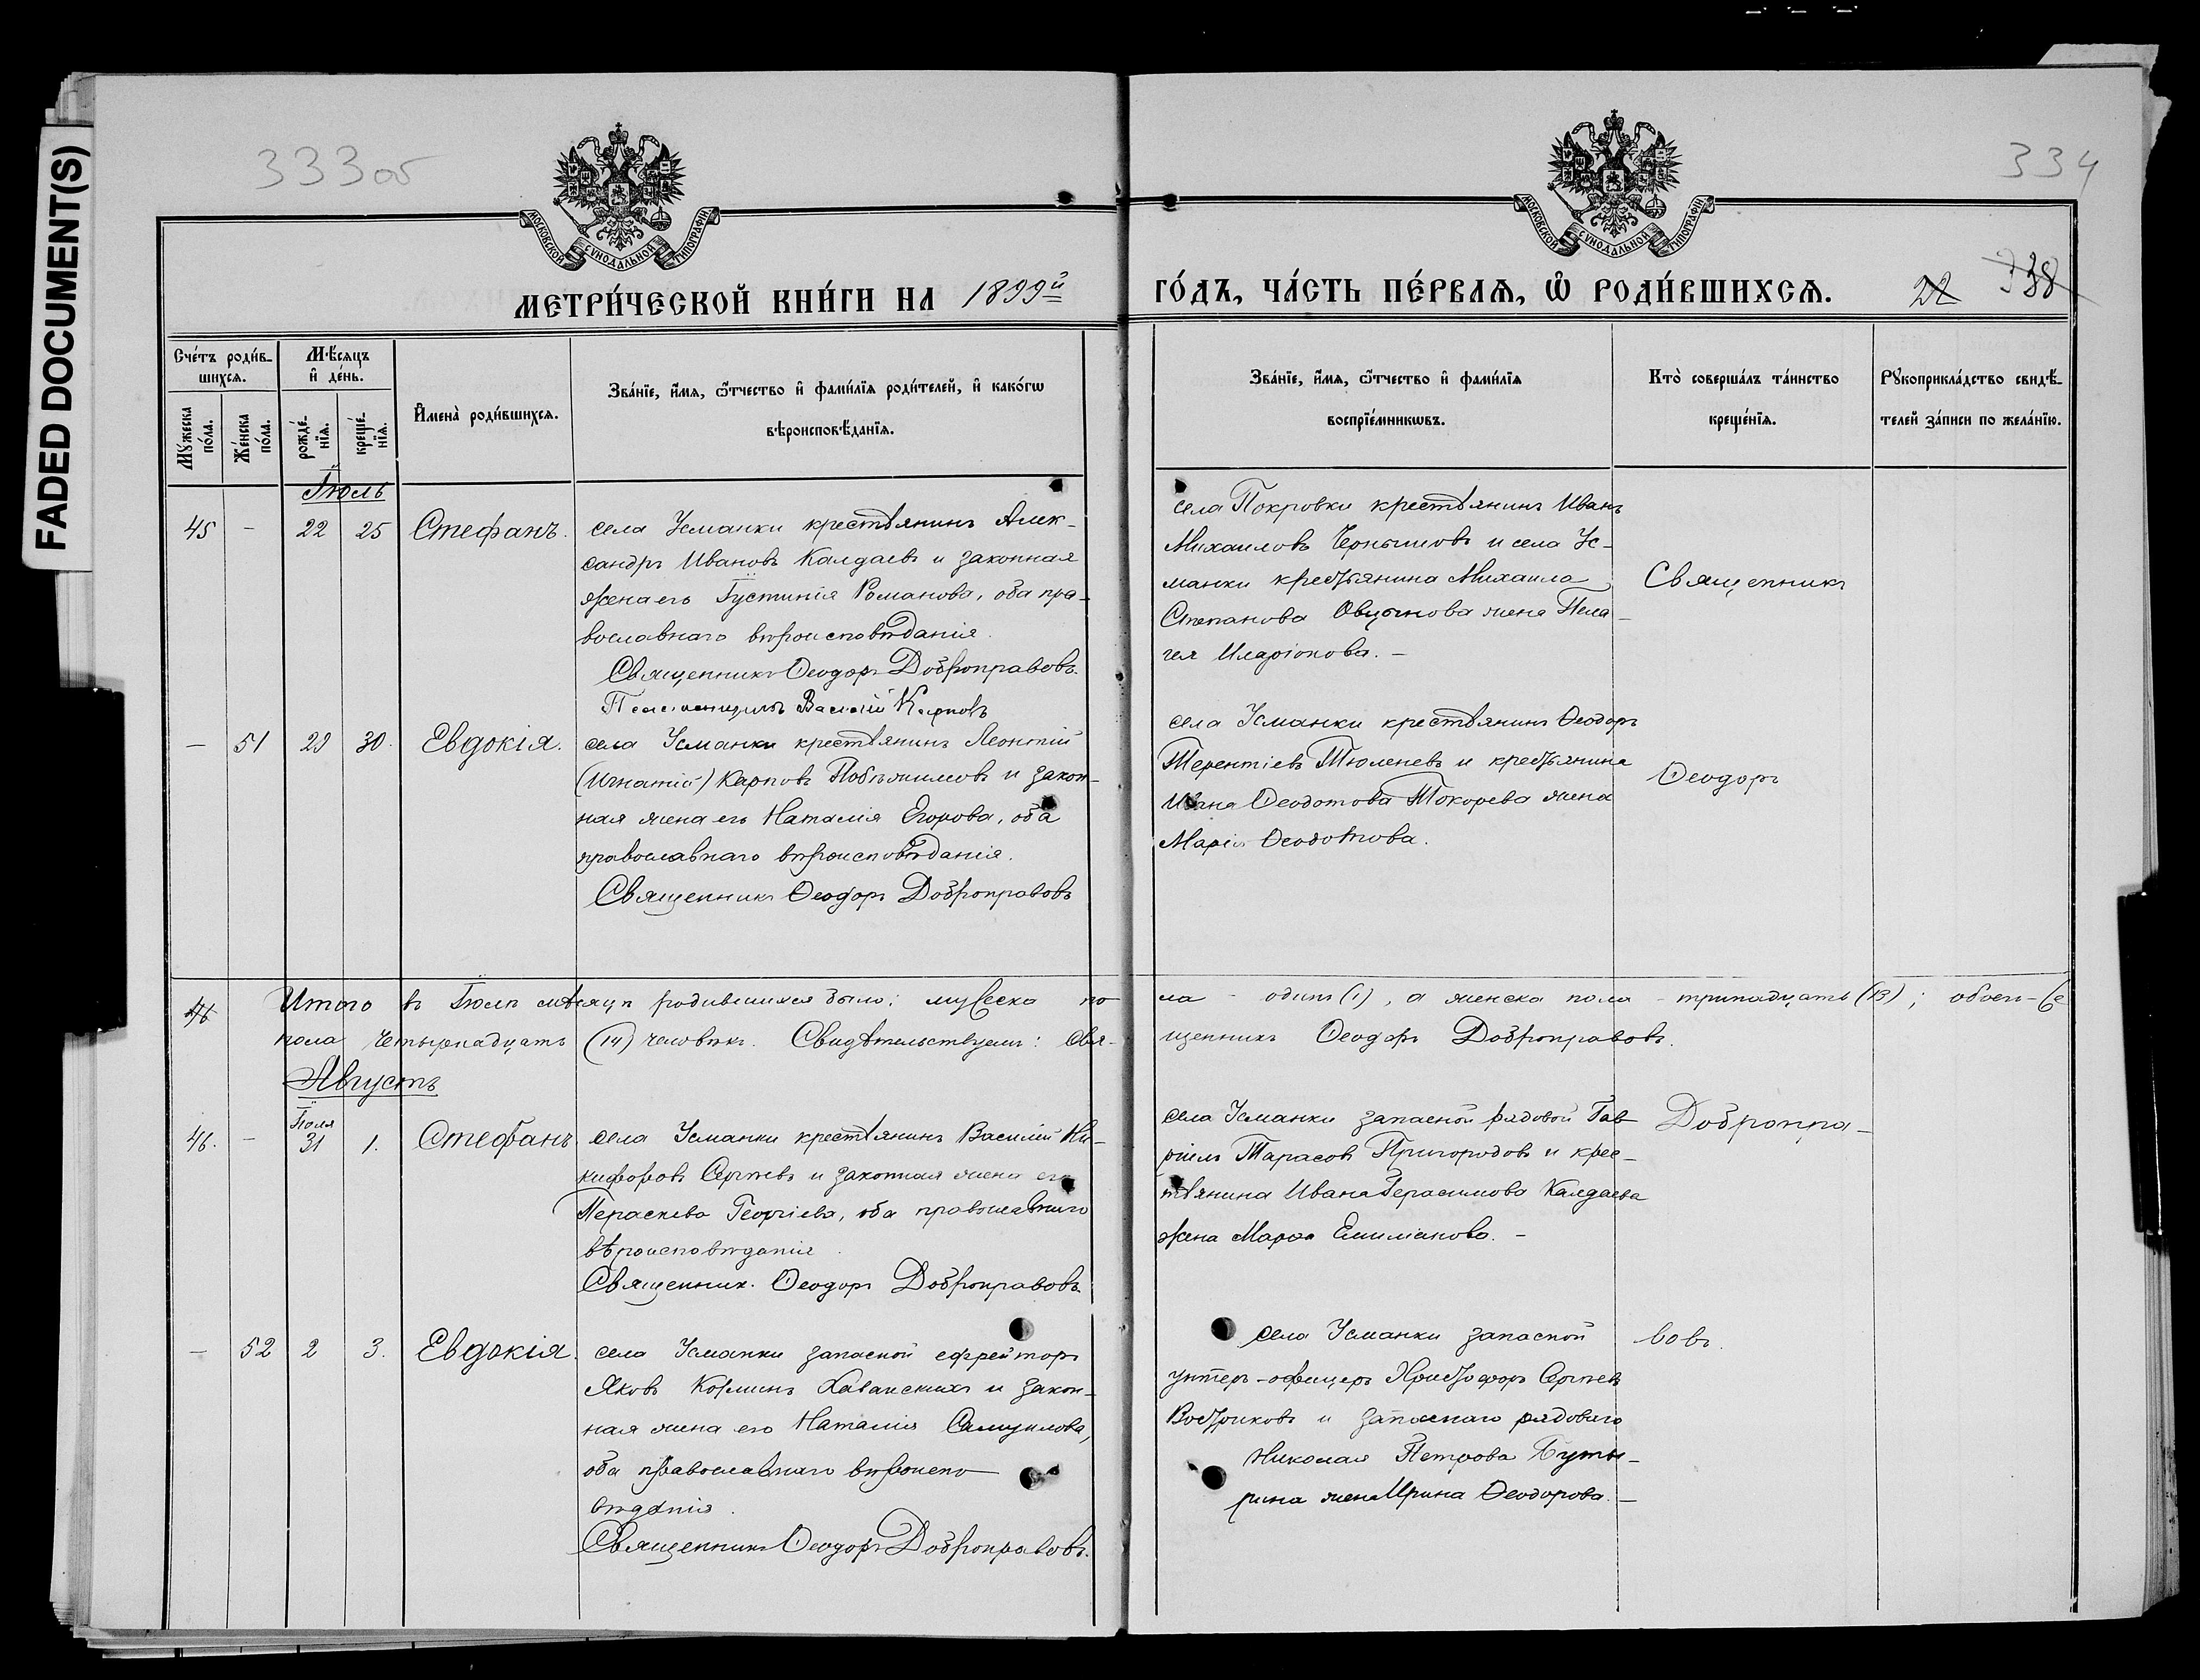 FADED DOCUMENT(S)
333об
334
МОСКОВСКОЙ СУНОДАЛЬНОЙ ТИПОГРАФІИ.
МОСКОВСКОЙ СУНОДАЛЬНОЙ ТИПОГРАФІИ.
МЕТРИ́ЧЕСКОЙ КНИ́ГИ НА 1899й
ГО́ДЪ, ЧА́СТЬ ПЕ́РВАѦ, Ѡ҆ РОДИ́ВШИХСѦ.
22 338
Сче́тъ роди́в-
шихсѧ.
Мѣ́сѧцъ
и҆ де́нь.
И҆мена̀ роди́вшихсѧ.
Зва́нїе, и҆́мѧ, ѻ҆́тчество и҆ фами́лїѧ роди́телей, и҆ како́гѡ
вѣроисповѣ́данїѧ.
Мꙋ́жеска
по́ла.
Же́нска
по́ла.
рожде́-
нїѧ.
креще́-
нїѧ.
Зва́нїе, и҆́мѧ, ѻ҆́тчество и҆ фами́лїѧ
воспрїе́мникѡвъ.
Кто̀ соверша́лъ та́инство
креще́нїѧ.
Рꙋкоприкла́дство свидѣ́-
телей за́писи по жела́нїю.
Іюль
45 - 22 25 Стефанъ.
села Усманки крестьянинъ Алек-
сандръ Ивановъ Калдаевъ и законная
жена его Іустинія Романова, оба пра-
вославнаго вѣроисповѣданія.
Священникъ Ѳеодоръ Добронравовъ.
Василій Карповъ
села Покровки крестьянинъ Иванъ
Михаиловъ Чернышовъ и села Ус-
манки крестьянина Михаила
Степанова Овцынова жена Пела-
гея Иларіонова. -
Священникъ
— 51 29 30. Евдокія.
села Усманки крестьянинъ Леонтій
(Игнатій) Карповъ и закон-
ная жена его Наталія Егорова, оба
православнаго вѣроисповѣданія.
Священникъ Ѳеодоръ Добронравовъ
села Усманки крестьянинъ Ѳеодоръ
Терентіевъ Тюленевъ и крестьянина
Ивана Ѳеодотова Токорева жена
Марія Ѳеодотова.
Ѳеодоръ
46 Итого въ Іюлѣ мѣсяцѣ родившихся было: мужеска по
ла - одинъ (1), а женска пола - тринадцать (13); обоего
пола Четырнадцать (14) человѣкъ. Свидѣтельствуемъ: Свя-
щенникъ Ѳеодоръ Добронравовъ.
Августъ
Іюля
46. - 31 1. Стефанъ
села Усманки крестьянинъ Василій Ни-
кифоровъ Сергѣевъ и законная жена его
Параскева Георгіева, оба православнаго
вѣроисповѣданія.
Священник. Ѳеодоръ Добронравовъ.
села Усманки запасной рядовой Гав-
ріилъ Тарасовъ Пригородовъ и крес-
тьянина Ивана Герасимова Калдаева
жена Марѳа Емиліанова. -
Добронра-
— 52 2 3. Евдокія.
села Усманки запасной ефрейторъ
Яковъ Козминъ Хаванскихъ и закон-
ная жена его Наталія Самуилова,
оба православнаго вѣроиспо-
вѣданія.
Священникъ Ѳеодоръ Добронравовъ.
села Усманки запасной
унтеръ-офицеръ Христофоръ Сергѣевъ
Востриковъ и запаснаго рядового
Николая Петрова Буты-
рина жена Ирина Ѳеодорова. —
вовъ.